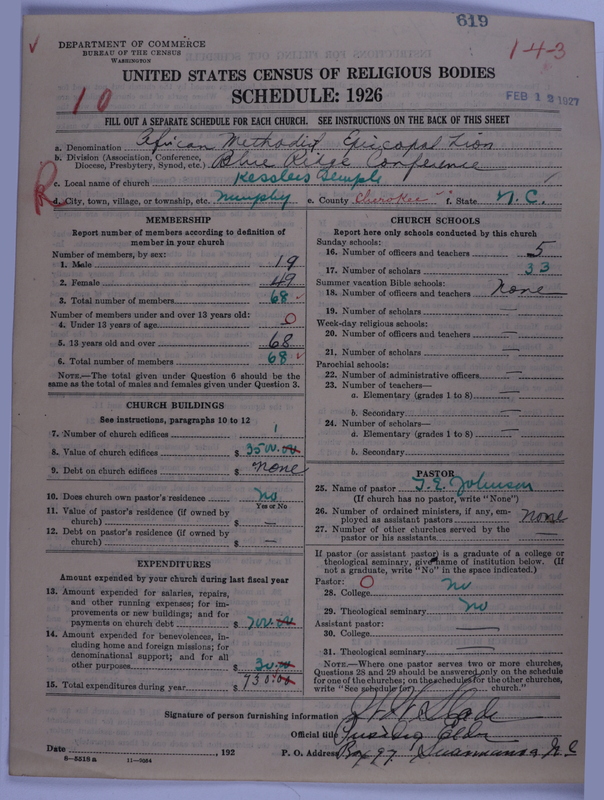 619
DEPARTMENT OF COMMERCE
BUREAU OF THE CENSUS
WASHINGTON
1-4-3
UNITED STATES CENSUS OF RELIGIOUS BODIES
SCHEDULE: 1926
10
FEB 12 1927
FILL OUT A SEPARATE SCHEDULE FOR EACH CHURCH. SEE INSTRUCTIONS ON THE BACK OF THIS SHEET
a. Denomination African Methodist Episcopal Zion
b. Division (Association, Conference, Diocese, Presbytery, Synod, etc.) Blue Ridge Conference
c. Local name of church Kesslers Temple
d. City, town, village, or township, etc. Murphy e. County Cherokee f. State N.C.
MEMBERSHIP
Report number of members according to definition of
member in your church
Number of members, by sex:
1. Male 19
2. Female 49
3. Total number of members 68
Number of members under and over 13 years old:
4. Under 13 years of age 0
5. 13 years old and over 68
6. Total number of members 68
NOTE.—The total given under Question 6 should be the
same as the total of males and females given under Question 3.
CHURCH BUILDINGS
See instructions, paragraphs 10 to 12
7. Number of church edifices 1
8. Value of church edifices $ 3500.00
9. Debt on church edifices $ None
10. Does church own pastor's residence No
Yes or No
11. Value of pastor's residence (if owned by
church) $ —
12. Debt on pastor's residence (if owned by
church) $ —
EXPENDITURES
Amount expended by your church during last fiscal year
13. Amount expended for salaries, repairs,
and other running expenses; for im-
provements or new buildings; and for
payments on church debt $ 700.00
14. Amount expended for benevolences, in-
cluding home and foreign missions; for
denominational support; and for all
other purposes $ 30.00
15. Total expenditures during year $ 730.00
CHURCH SCHOOLS
Report here only schools conducted by this church
Sunday schools:
16. Number of officers and teachers 5
17. Number of scholars 33
Summer vacation Bible schools:
18. Number of officers and teachers None
19. Number of scholars —
Week-day religious schools:
20. Number of officers and teachers —
21. Number of scholars —
Parochial schools:
22. Number of administrative officers —
23. Number of teachers—
a. Elementary (grades 1 to 8) —
b. Secondary —
24. Number of scholars—
a. Elementary (grades 1 to 8) —
b. Secondary
PASTOR
25. Name of pastor T. E. Johnson
(If church has no pastor, write "None")
26. Number of ordained ministers, if any, em-
ployed as assistant pastors None
27. Number of other churches served by the
pastor or his assistants —
If pastor (or assistant pastor) is a graduate of a college or
theological seminary, give name of institution below. (If
not a graduate, write "No" in the space indicated.)
Pastor: 0
28. College No
29. Theological seminary No
Assistant pastor:
30. College —
31. Theological seminary —
NOTE.—Where one pastor serves two or more churches,
Questions 28 and 29 should be answered only on the schedule
for one of the churches; on the schedules for the other churches,
write "See schedule for church."
Signature of person furnishing information Slade
Official title Presiding Elder
Date , 192 P. O. Address Box 97 N C
8-5518a 11-9054